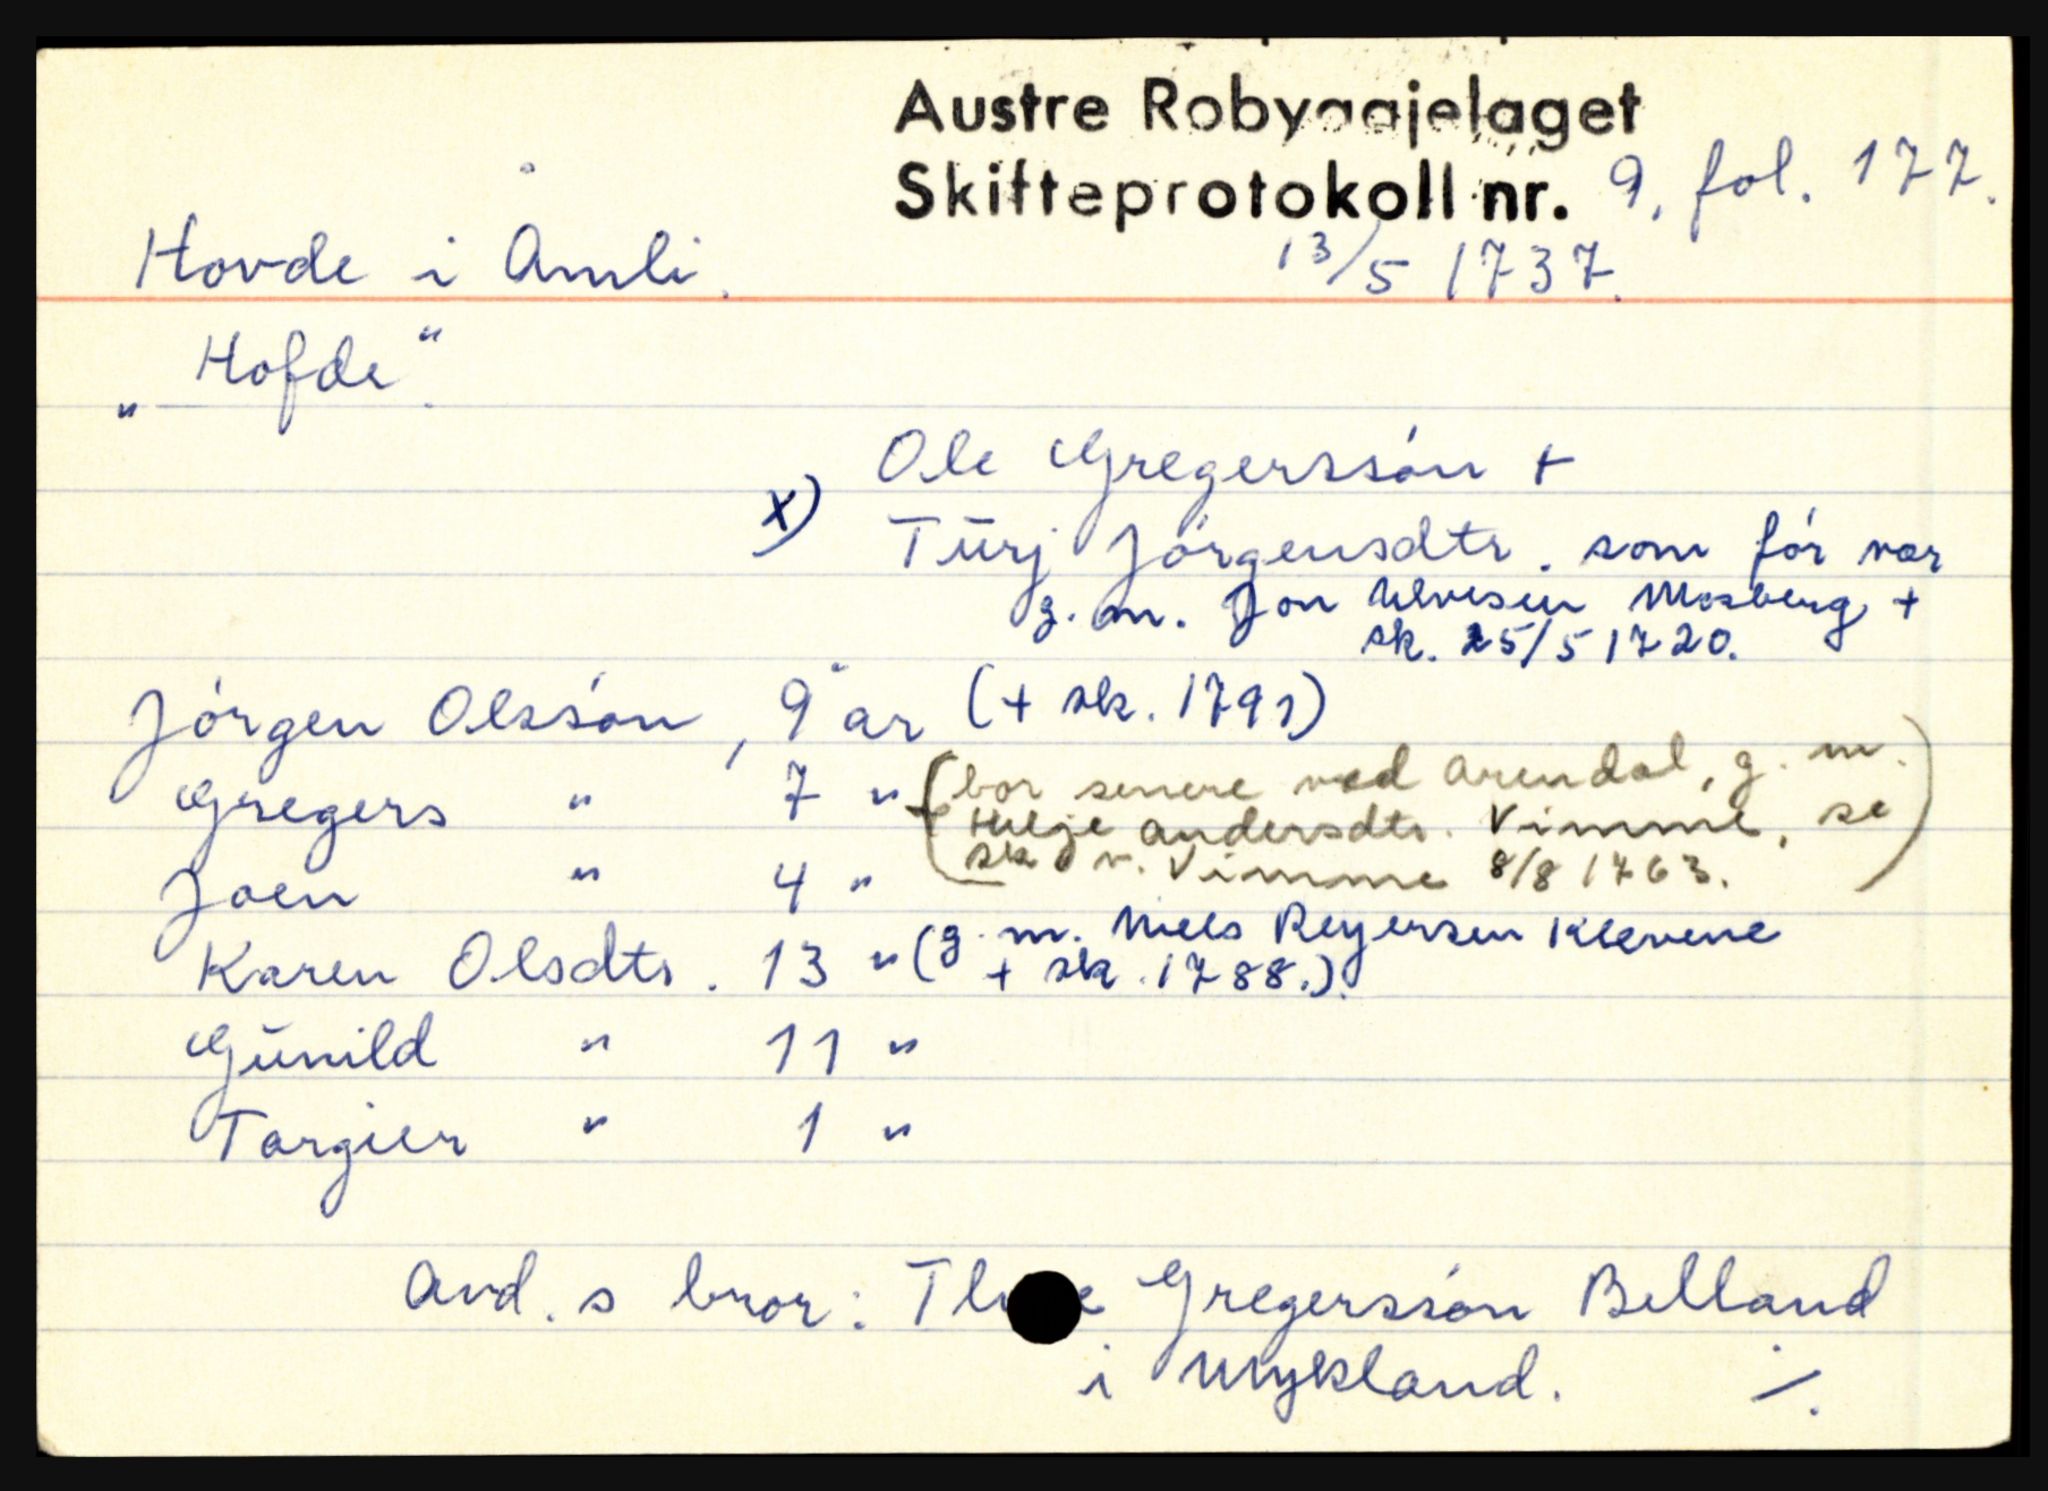 Austre Robyggjelaget
Skifteprotokoll nr. 9, fol. 177.
Hovde i Åmli. 13/5 1737.
„Hofde“.
Ole Gregerssón +
x) Tūrj Jórgensdtr. som fór var
g. m. Jon Ulvesen Mosberg +
sk. 25/5 1720.
Jórgen Olssón, 9 år (+ sk. 1791)
Gregers " 7 " (bor senere ved Arendal, g. m.
Helje Andersdtr. Vimme, se
sk v. Vimme 8/8 1763.)
Joen " 4 "
Karen Olsdtr. 13 " (g. m. Niels Reyersen Klevene
+ sk. 1788.).
Gūnild " 11 "
Targier " 1 "
Avd. s bror: Gregerssón Belland
i Mykland. ./.